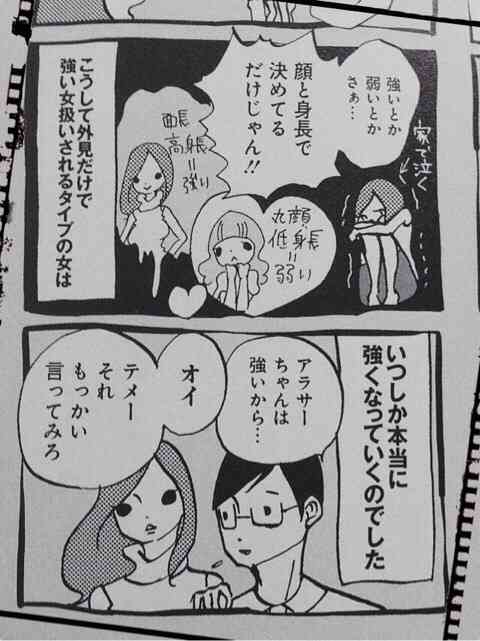 強いとか
弱いとか
さぁ…
家で泣く
顔と身長で
決めてる
だけじゃん!!
面長
高身長
=
強い
丸顔
低身長
=
弱い
こうして外見だけで
強い女扱いされるタイプの女は
いつしか本当に
強くなっていくのでした
アラサー
ちゃんは
強いから…
オイ
テメー
それ
もっかい
言ってみろ